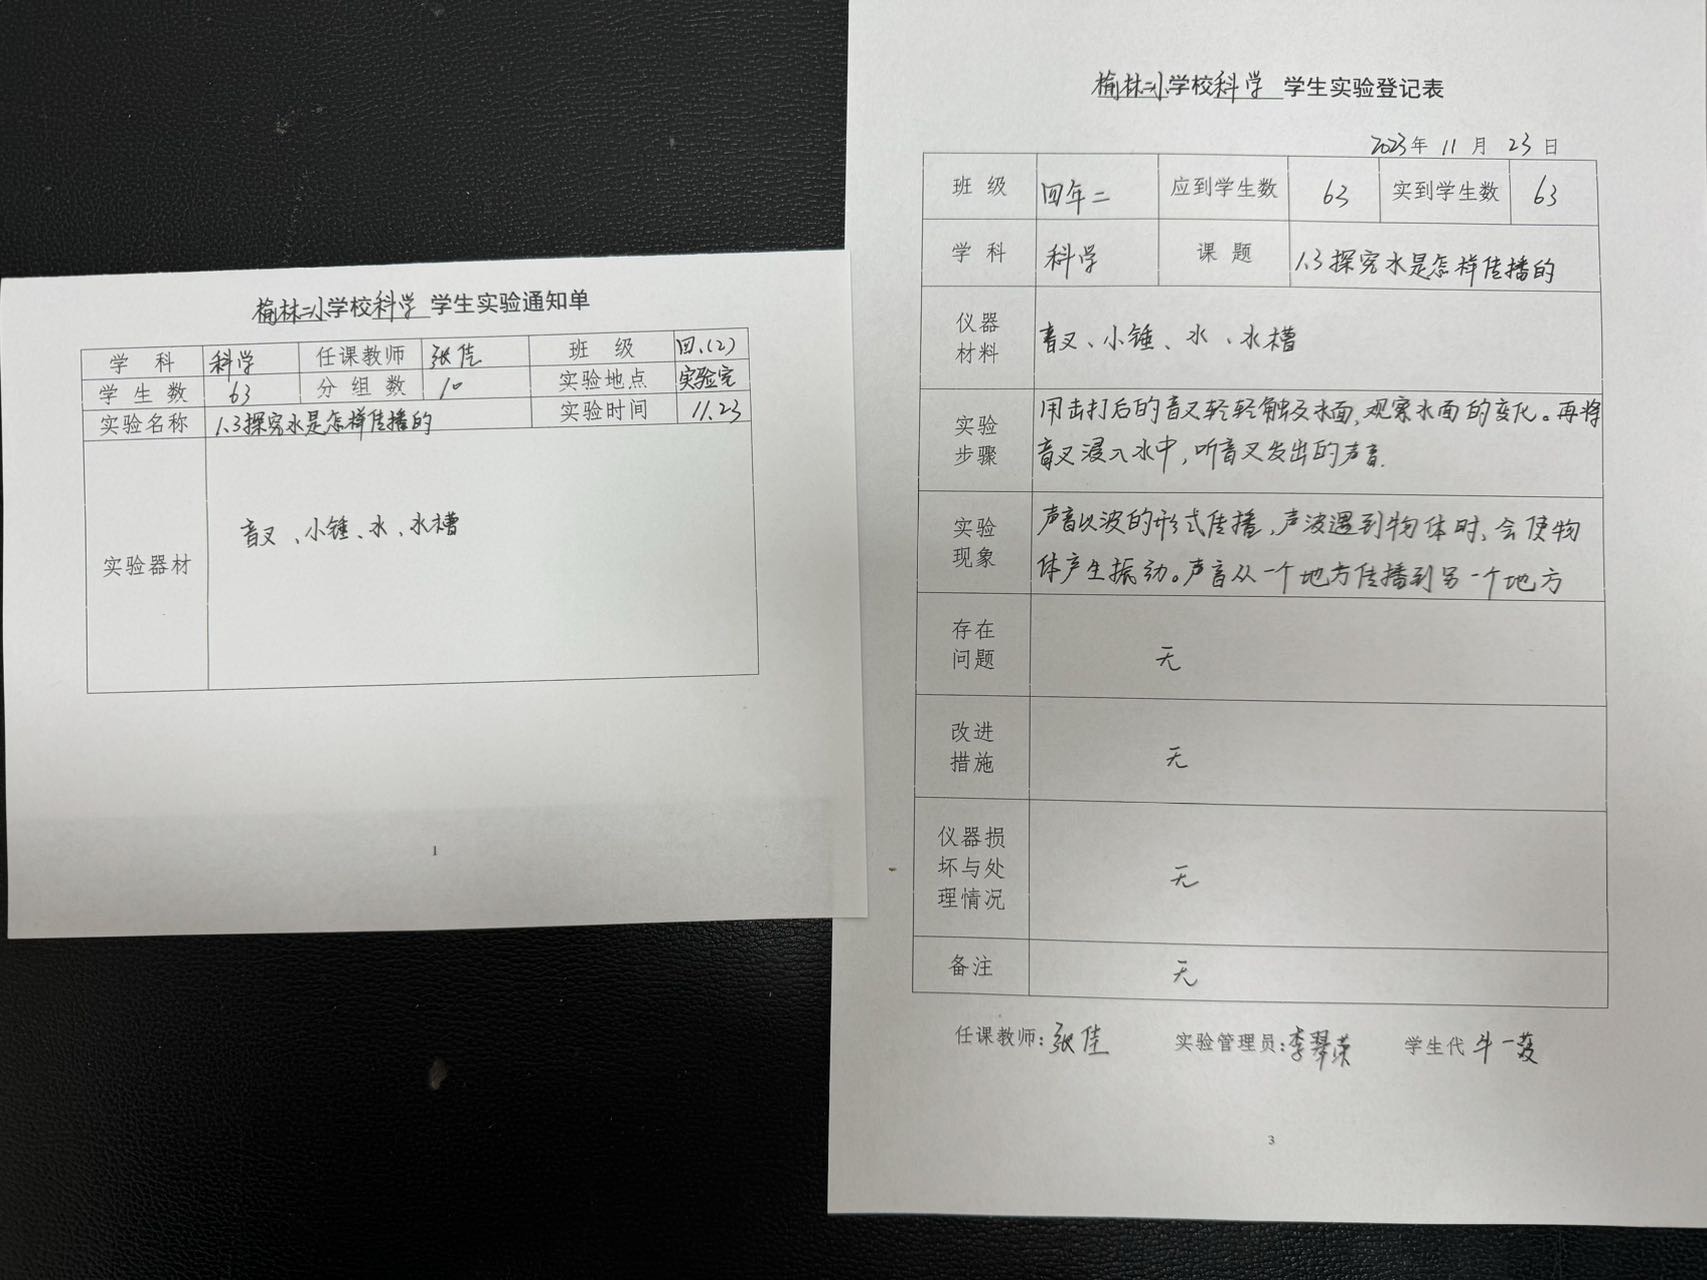 榆林二小学校科学 学生实验通知单
学 科 科学 任课教师 张佳 班 级 四.(2)
学 生 数 63 分 组 数 10 实验地点 实验室
实验名称 1.3探究水是怎样传播的 实验时间 11.23
实验器材
音叉、小锤、水、水槽
1
榆林二小学校科学 学生实验登记表
2023年 11 月 23 日
班 级 四年二 应到学生数 63 实到学生数 63
学 科 科学 课 题 1.3探究水是怎样传播的
仪器
材料
音叉、小锤、水、水槽
实验
步骤
用击打后的音叉轻轻触及水面,观察水面的变化。再将
音叉浸入水中,听音叉发出的声音.
实验
现象
声音以波的形式传播,声波遇到物体时,会使物
体产生振动。声音从一个地方传播到另一个地方
存在
问题
无
改进
措施
无
仪器损
坏与处
理情况
无
备注
无
任课教师:张佳 实验管理员:李翠荣 学生代 牛一
3